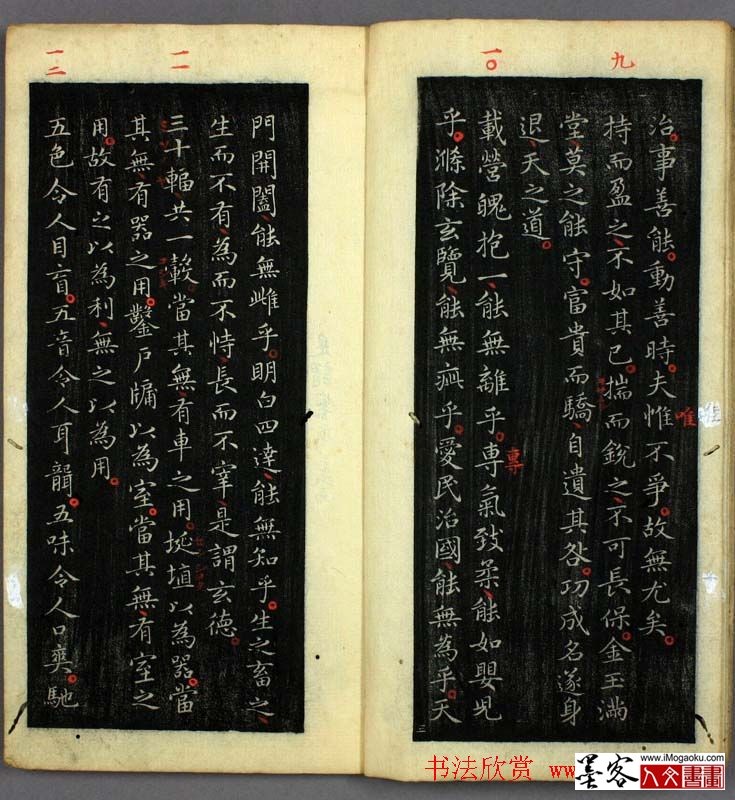 九
一〇
治事善能動善時夫惟不爭故無尤矣
唯
持而盈之不如其已揣而銳之不可長保金玉滿
堂莫之能守富貴而驕自遺其咎功成名遂身
退天之道
載營魄抱一能無離乎專氣致柔能如嬰兒
專
乎滌除玄覽能無疵乎愛民治國能無為乎天
一一
一二
門開闔能無雌乎明白四達能無知乎生之畜之
生而不有為而不恃長而不宰是謂玄德
三十輻共一轂當其無有車之用埏埴以為器當
其無有器之用鑿戶牖以為室當其無有室之
用故有之以為利無之以為用
五色令人目盲五音令人耳聾五味令人口爽馳
书法欣赏 www
墨客
人文書畫
www.iMogaoku.com